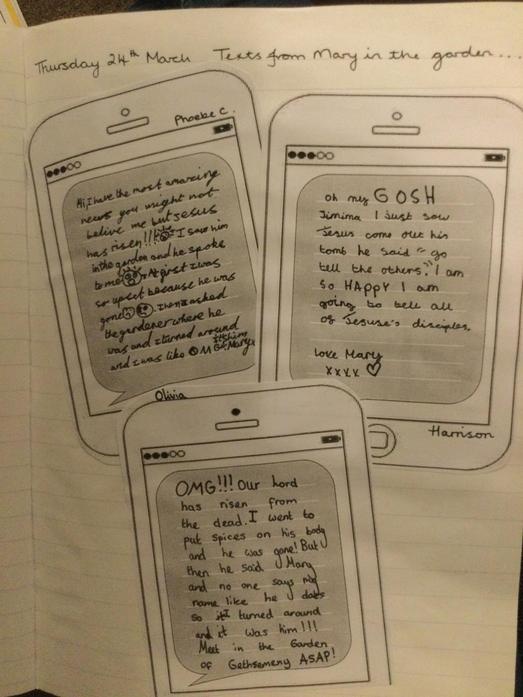 Thursday 24th March Texts from Mary in the garden...
Phoebe C.
Hi, I have the most amazing
news you might not
belive me but Jesus
has risen!!! I saw him
in the garden and he spoke
to me At first I was
so upset because he was
gone. Then I asked
the gardener where he
was and I turned around
and I was like OMG It's him
Mary x
oh my GOSH
Jimima I just saw
Jesus come out his
tomb he said "go
tell the others." I am
so HAppy I am
going to tell all
of Jesuse's disciples.
Love Mary
xxxx
Harrison
Olivia
OMG!!! Our lord
has risen from
the dead. I went to
put spices on his body
and he was gone! But
then he said Mary
and no one says my
name like he dose
so I turned around
and it was him!!!
Meet in the Garden
of Gethsemeny ASAP!